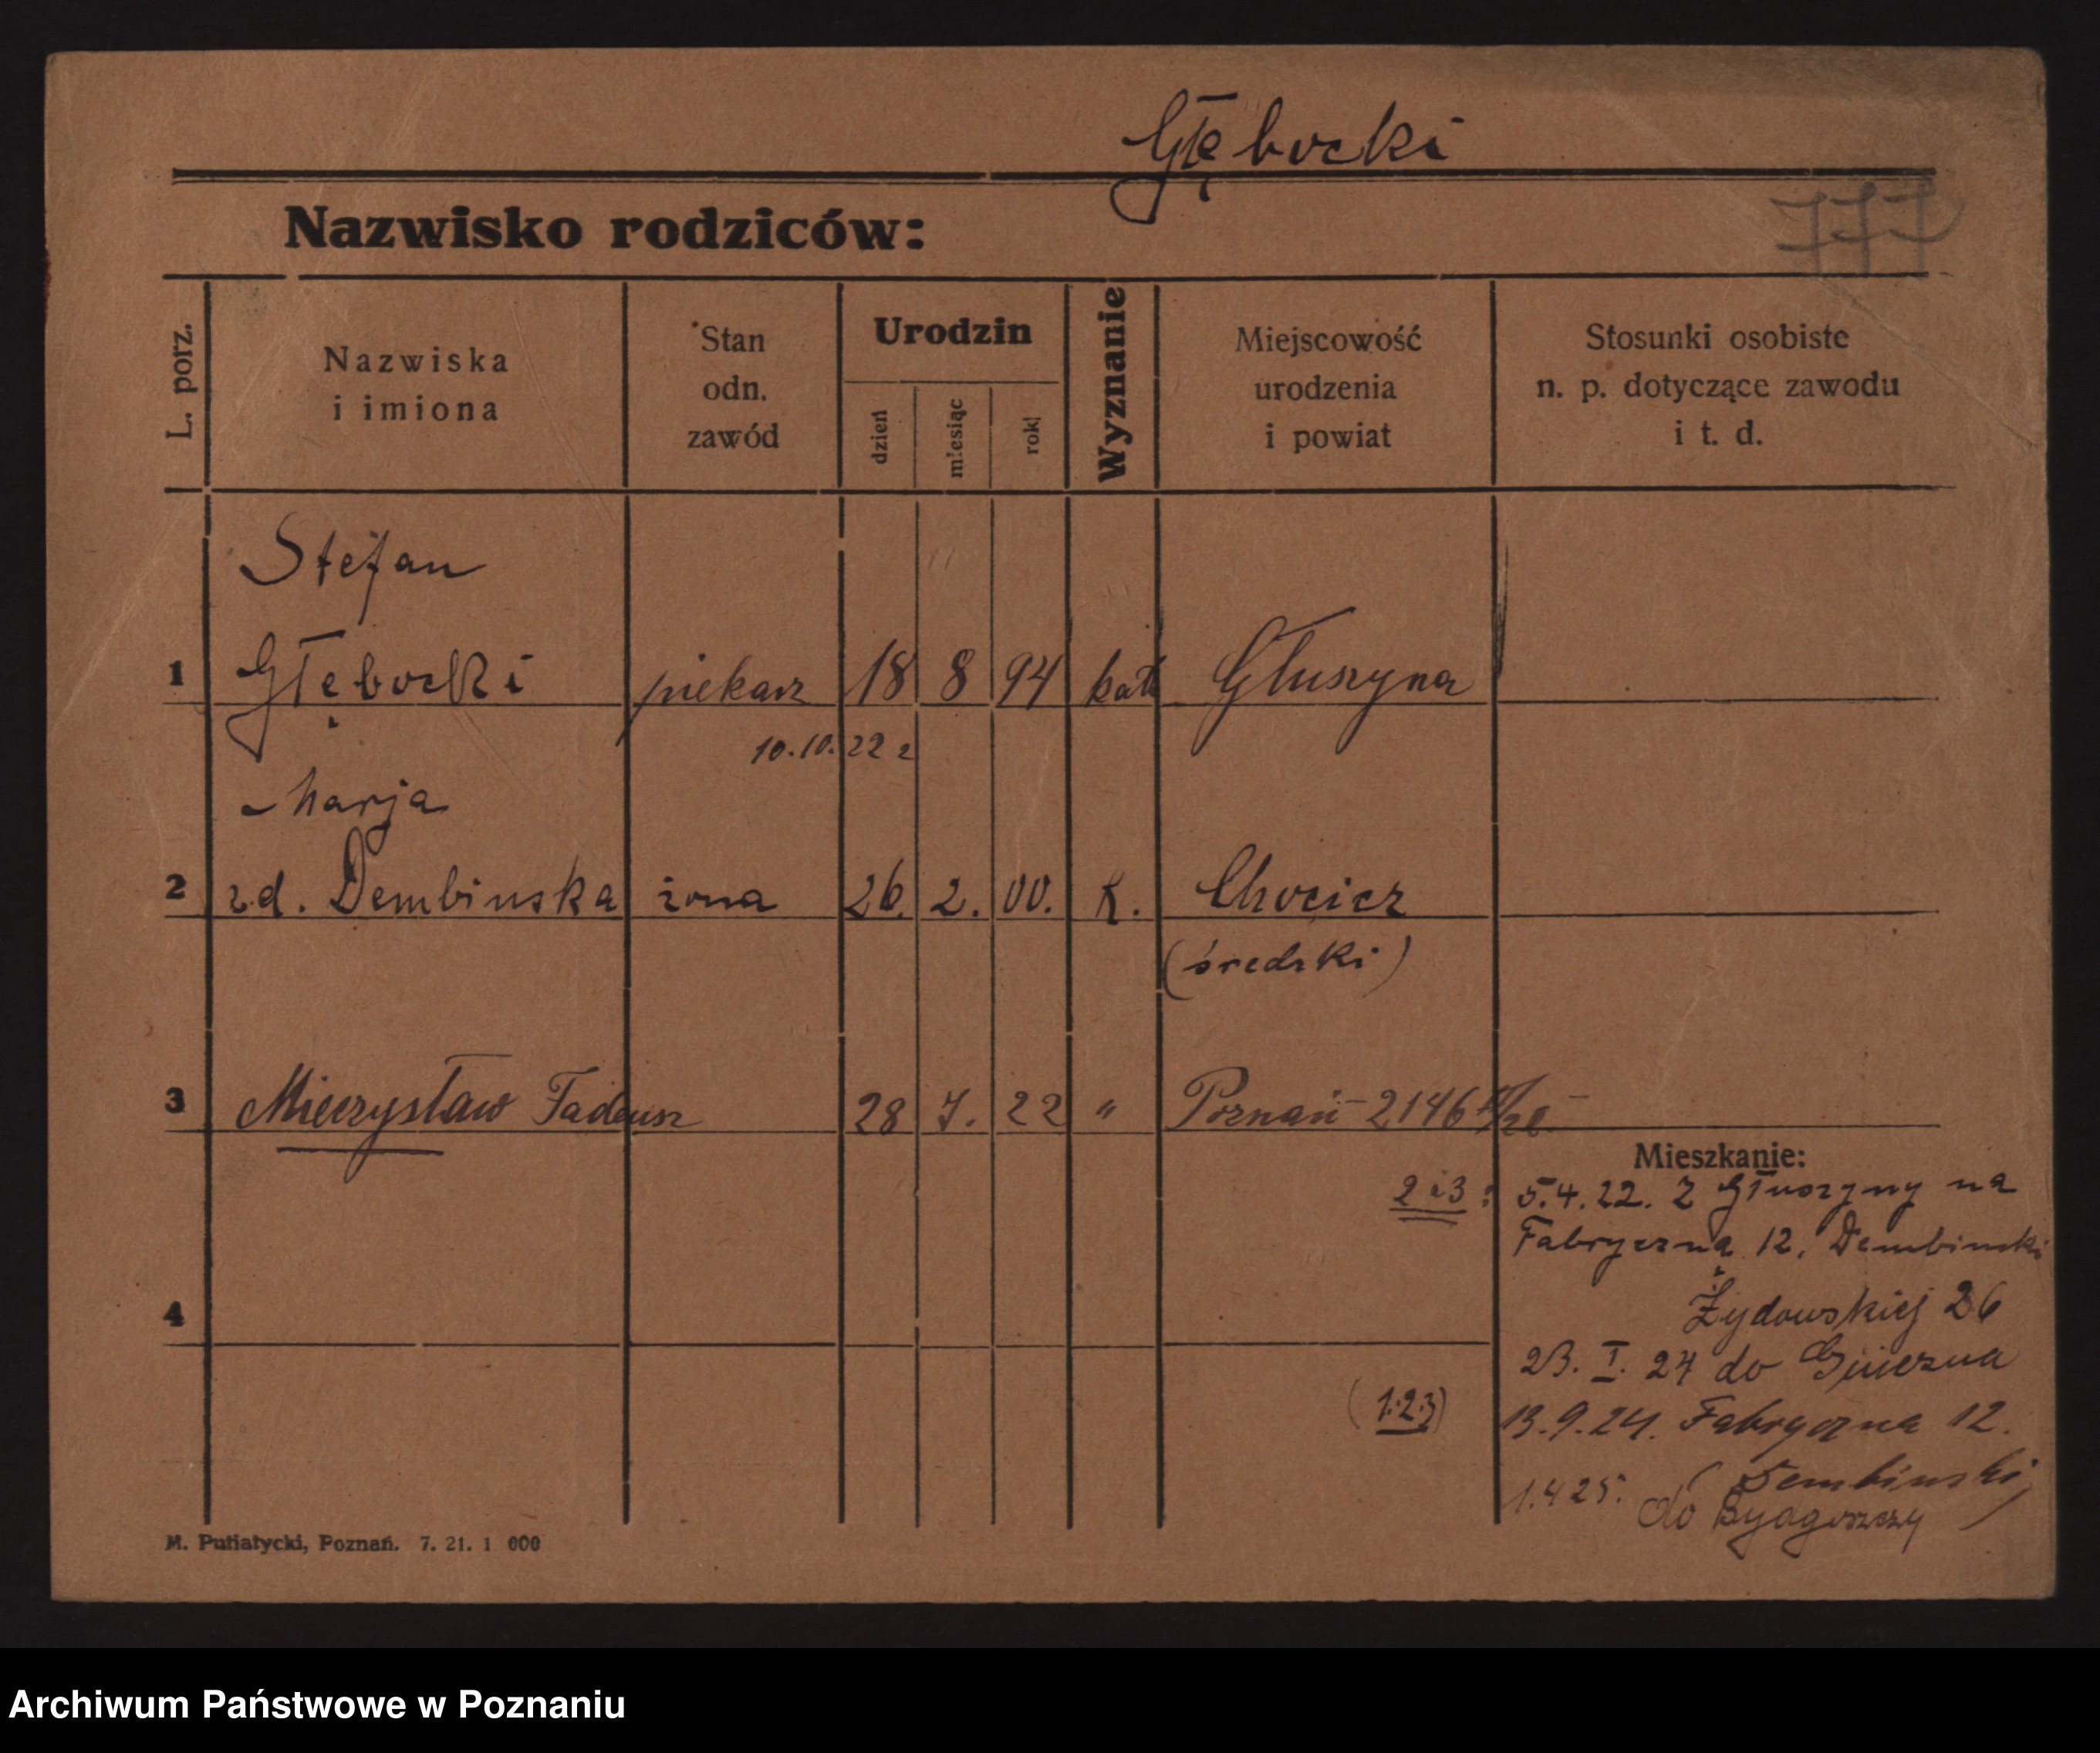 Głębocki
Nazwisko rodziców:
777
L. porz.
Nazwiska
i imiona
Stan
odn.
zawód
Urodzin
dzień
miesiąc
rok
Wyznanie
Miejscowość
urodzenia
i powiat
Stosunki osobiste
n. p. dotyczące zawodu
i t. d.
Stefan
1 Głębocki piekarz 18 8 94 kat Głuszyna
10.10.22 r
Marja
2 z.d. Dembinska żona 26. 2. 00. k. Chocicz
(średzki)
3 Mieczysław Tadeusz 28 7. 22 " Poznań 2146
Mieszkanie:
2 i 3 : 5.4.22. Z Głuszyny na
Fabryczną 12. Dembinski
Żydowskiej 26
4
23. I. 24 do Gniezna
(1.2.3) 13.9.24. Fabryczna 12.
Dembinski
1.4 25. do Bydgoszczy
M. Putiatycki, Poznań. 7. 21. 1 000
Archiwum Państwowe w Poznaniu